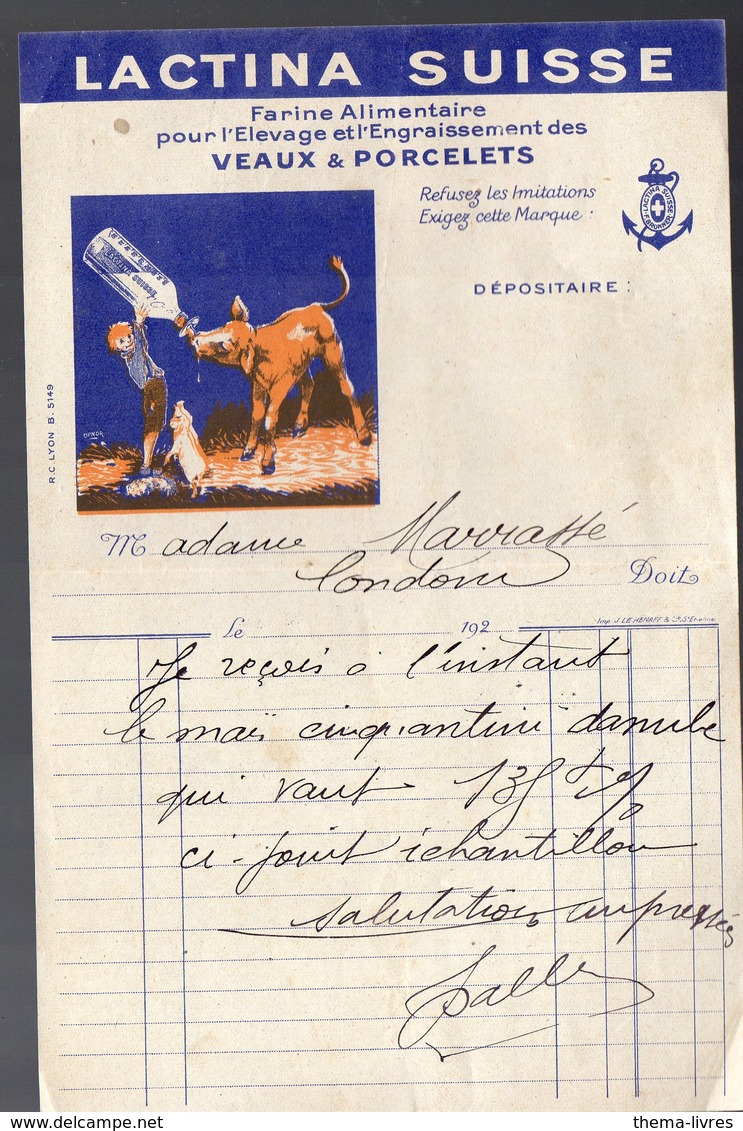 LACTINA SUISSE
Farine Alimentaire
pour l'Elevage et l'Engraissement des
VEAUX & PORCELETS
Refusez les Imitations
Exigez cette Marque :
LACTINA SUISSE
DÉPOSITAIRE :
LACTINA SUISSE
R.C. LYON B. 5149
Madame Marrassé
Condom Doit
Imp. J. LE HENAFF & Cie, St Etienne
Le 192
Je reçois à l'instant
le maïs cinquantini danube
qui vaut 135
ci-joint échantillon
salutations empressées
thema-livres